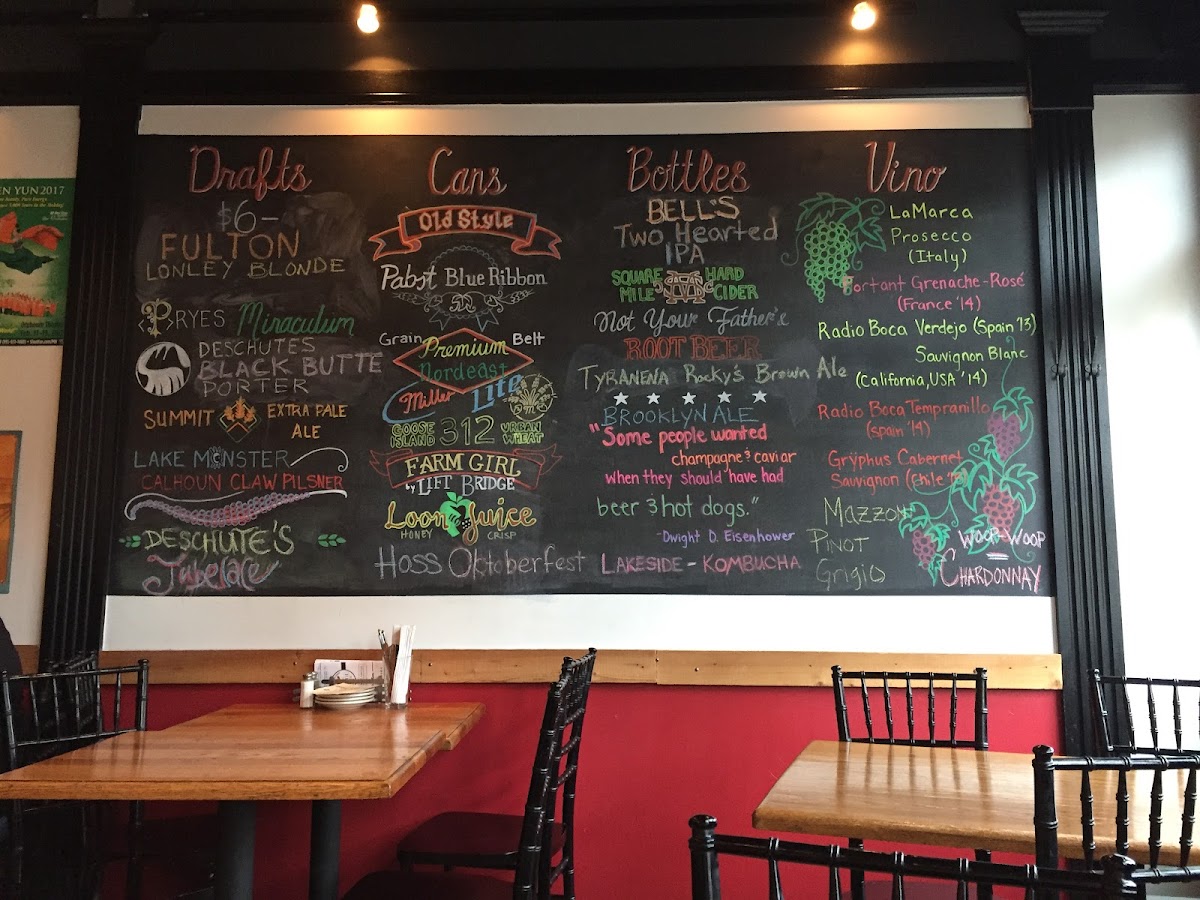 EN YUN 2017
Drafts
$6-
FULTON
LONLEY BLONDE
PRYES Miraculum
DESCHUTES
BLACK BUTTE
PORTER
SUMMIT EXTRA PALE
ALE
LAKE MONSTER
CALHOUN CLAW PILSNER
DESCHUTE'S
Jubelale
Cans
Old Style
Pabst Blue Ribbon
Grain Belt
Premium
Nordeast
Miller Lite
GOOSE ISLAND 312 URBAN WHEAT
FARM GIRL
by LIFT BRIDGE
Loon Juice
HONEY CRISP
Hoss Oktoberfest
Bottles
BELL'S
Two Hearted
IPA
SQUARE HARD
MILE CIDER
Not Your Father's
ROOT BEER
TYRANENA Rocky's Brown Ale
BROOKLYN ALE
"Some people wanted
champagne & caviar
when they should have had
beer & hot dogs."
-Dwight D. Eisenhower
LAKESIDE - KOMBUCHA
Vino
LaMarca
Prosecco
(Italy)
Fortant Grenache-Rosé
(France '14)
Radio Boca Verdejo (Spain '13)
Sauvignon Blanc
(California, USA '14)
Radio Boca Tempranillo
(Spain '14)
Grÿphus Cabernet
Sauvignon (Chile
Mazzoni
PINOT
Grigio
WOOP-WOOP
CHARDONNAY